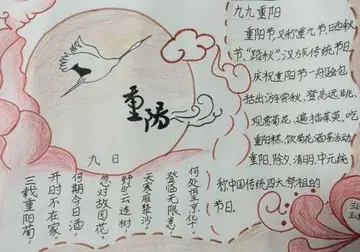 九九重阳
重阳节又称重九节、晒秋
节、“踏秋”,汉族传统节日。
庆祝重阳节一般会包
括出游赏秋、登高远眺、
观赏菊花、遍插茱萸、吃
重阳糕、饮菊花酒等活动
重阳、除夕、清明、中元统
称中国传统四大祭祖的
节日。
重陽
九日
三载重阳菊,
开时不在家。
何期今日酒,
忽对故园花。
野旷云连树,
天寒雁聚沙。
登临无限意,
何处望京华。